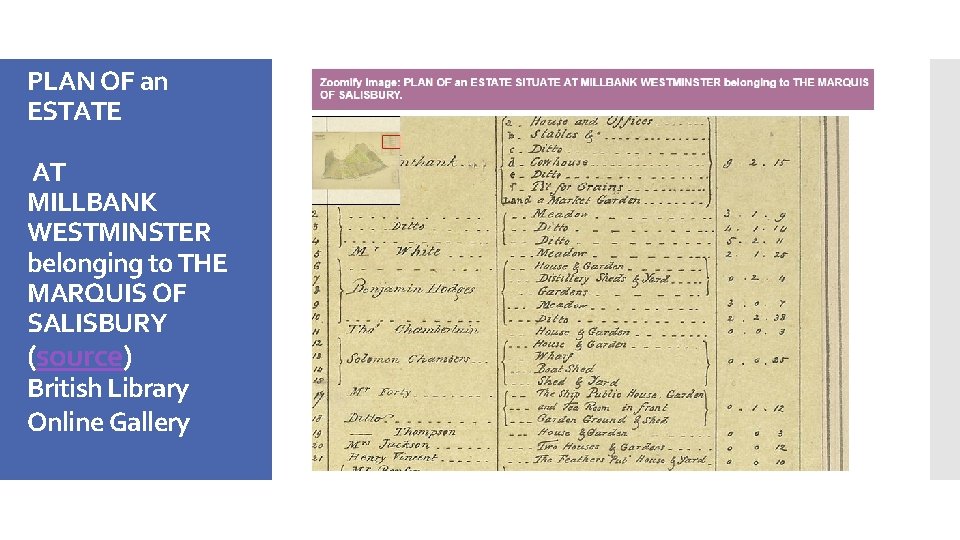 PLAN OF an
ESTATE
AT
MILLBANK
WESTMINSTER
belonging to THE
MARQUIS OF
SALISBURY
(source)
British Library
Online Gallery
Zoomify image: PLAN OF an ESTATE SITUATE AT MILLBANK WESTMINSTER belonging to THE MARQUIS
OF SALISBURY.
a House and Offices
b Stables &c
c Ditto
d Cowhouse 9 . 2 . 15
e Ditto
f Pit for Grains
Land a Market Garden
2 Meadow 3 . 1 . 9
3 Ditto Ditto 4 . 1 . 14
4 Ditto 5 . 2 . 11
5 Mr White Meadow 2 . 1 . 25
6 House & Garden
7 Distillery Sheds & Yard 0 . 2 . 4
8 Benjamin Hodges Gardens
Meadow 3 . 0 . 7
Ditto 2 . 2 . 38
11 Thos Chamberlain House & Garden 0 . 0 . 3
House & Garden
13 Solomon Chambers Wharf 0 . 0 . 25
Boat Shed
Shed & Yard
Mr Forty The Ship Public House, Garden
and Tea Room in front 0 . 1 . 12
18 Ditto? Garden Ground & Shed
19 Thompson House & Garden 0 0 3
20 Mrs Jackson Two Houses & Gardens 0 0 12
21 Henry Vincent The Feathers Pub House & Yard 0 0 10